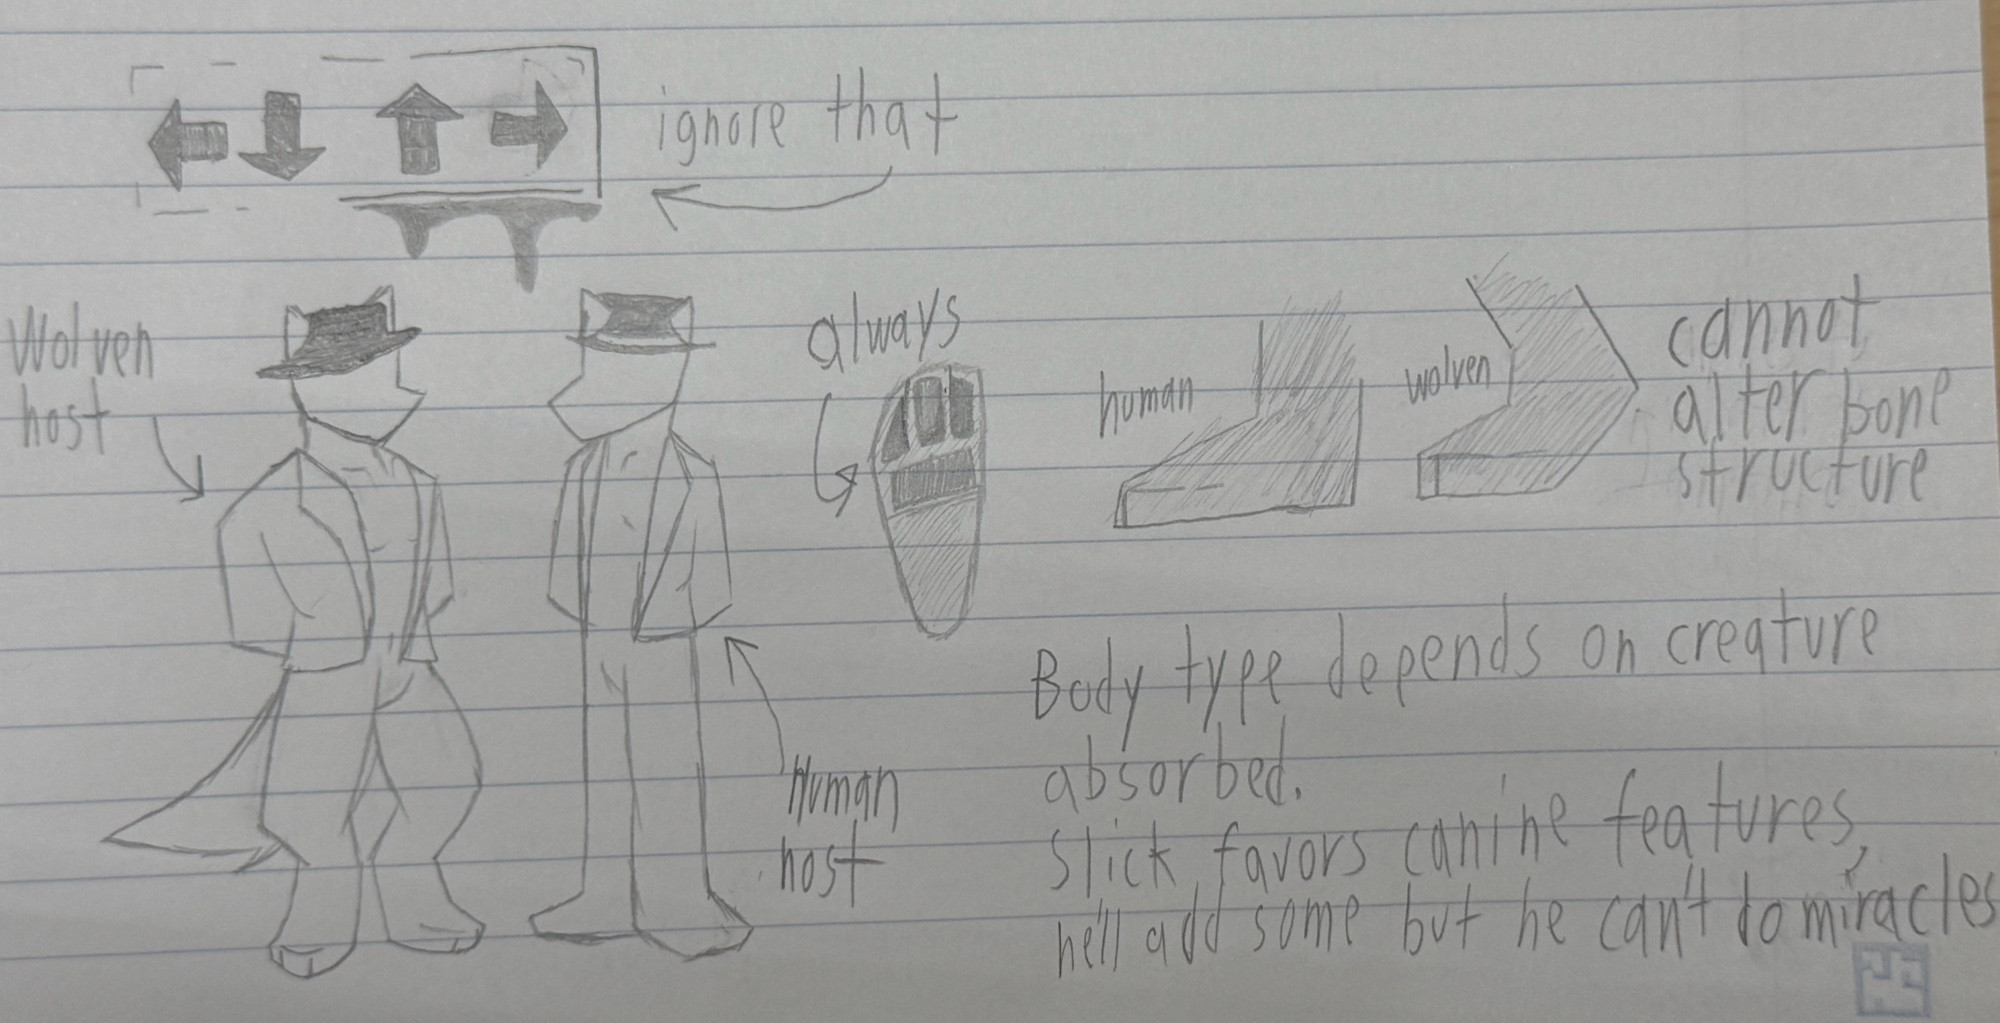 ignore that
Wolven
host
always
human
wolven
cannot
alter bone
structure
Human
host
Body type depends on creature
absorbed.
Slick favors canine features,
he'll add some but he can't do miracles